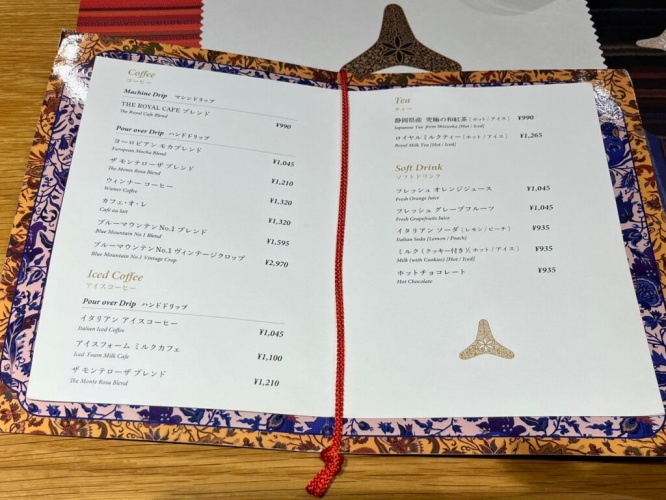 Coffee
コーヒー
Machine Drip マシンドリップ
THE ROYAL CAFE ブレンド ¥990
The Royal Cafe Blend
Pour over Drip ハンドドリップ
ヨーロピアン モカブレンド ¥1,045
European Mocha Blend
ザ モンテローザ ブレンド ¥1,210
The Monte Rosa Blend
ウィンナー コーヒー ¥1,320
Wiener Coffee
カフェ・オ・レ ¥1,320
Café au lait
ブルーマウンテンNo.1 ブレンド ¥1,595
Blue Mountain No.1 Blend
ブルーマウンテンNo.1 ヴィンテージクロップ ¥2,970
Blue Mountain No.1 Vintage Crop
Iced Coffee
アイスコーヒー
Pour over Drip ハンドドリップ
イタリアン アイスコーヒー ¥1,045
Italian Iced Coffee
アイスフォーム ミルクカフェ ¥1,100
Iced Foam Milk Cafe
ザ モンテローザ ブレンド ¥1,210
The Monte Rosa Blend
Tea
ティー
静岡県産 究極の和紅茶 [ホット/アイス] ¥990
Japanese Tea from Shizuoka [Hot / Iced]
ロイヤル ミルクティー [ホット/アイス] ¥1,265
Royal Milk Tea [Hot / Iced]
Soft Drink
ソフトドリンク
フレッシュ オレンジジュース ¥1,045
Fresh Orange Juice
フレッシュ グレープフルーツ ¥1,045
Fresh Grapefruits Juice
イタリアン ソーダ [レモン/ピーチ] ¥935
Italian Soda [Lemon / Peach]
ミルク (クッキー付き) [ホット/アイス] ¥935
Milk (with Cookies) [Hot / Iced]
ホットチョコレート ¥935
Hot Chocolate